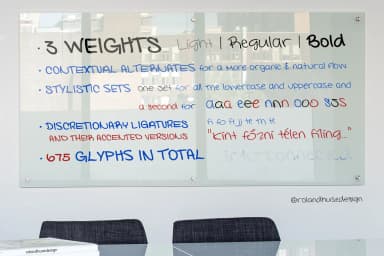 · 3 WEIGHTS Light | Regular | Bold
· CONTEXTUAL ALTERNATES for a more organic & natural flow
· STYLISTIC SETS one set for all the lowercase and uppercase and
a second for aaa eee nnn ooo sss
· DISCRETIONARY LIGATURES fi fo fu ti te tn tt
AND THEIR ACCENTED VERSIONS "Kint főzni télen filing..."
· 675 GLYPHS IN TOTAL
@rolandhusedesign
rolandhusedesign